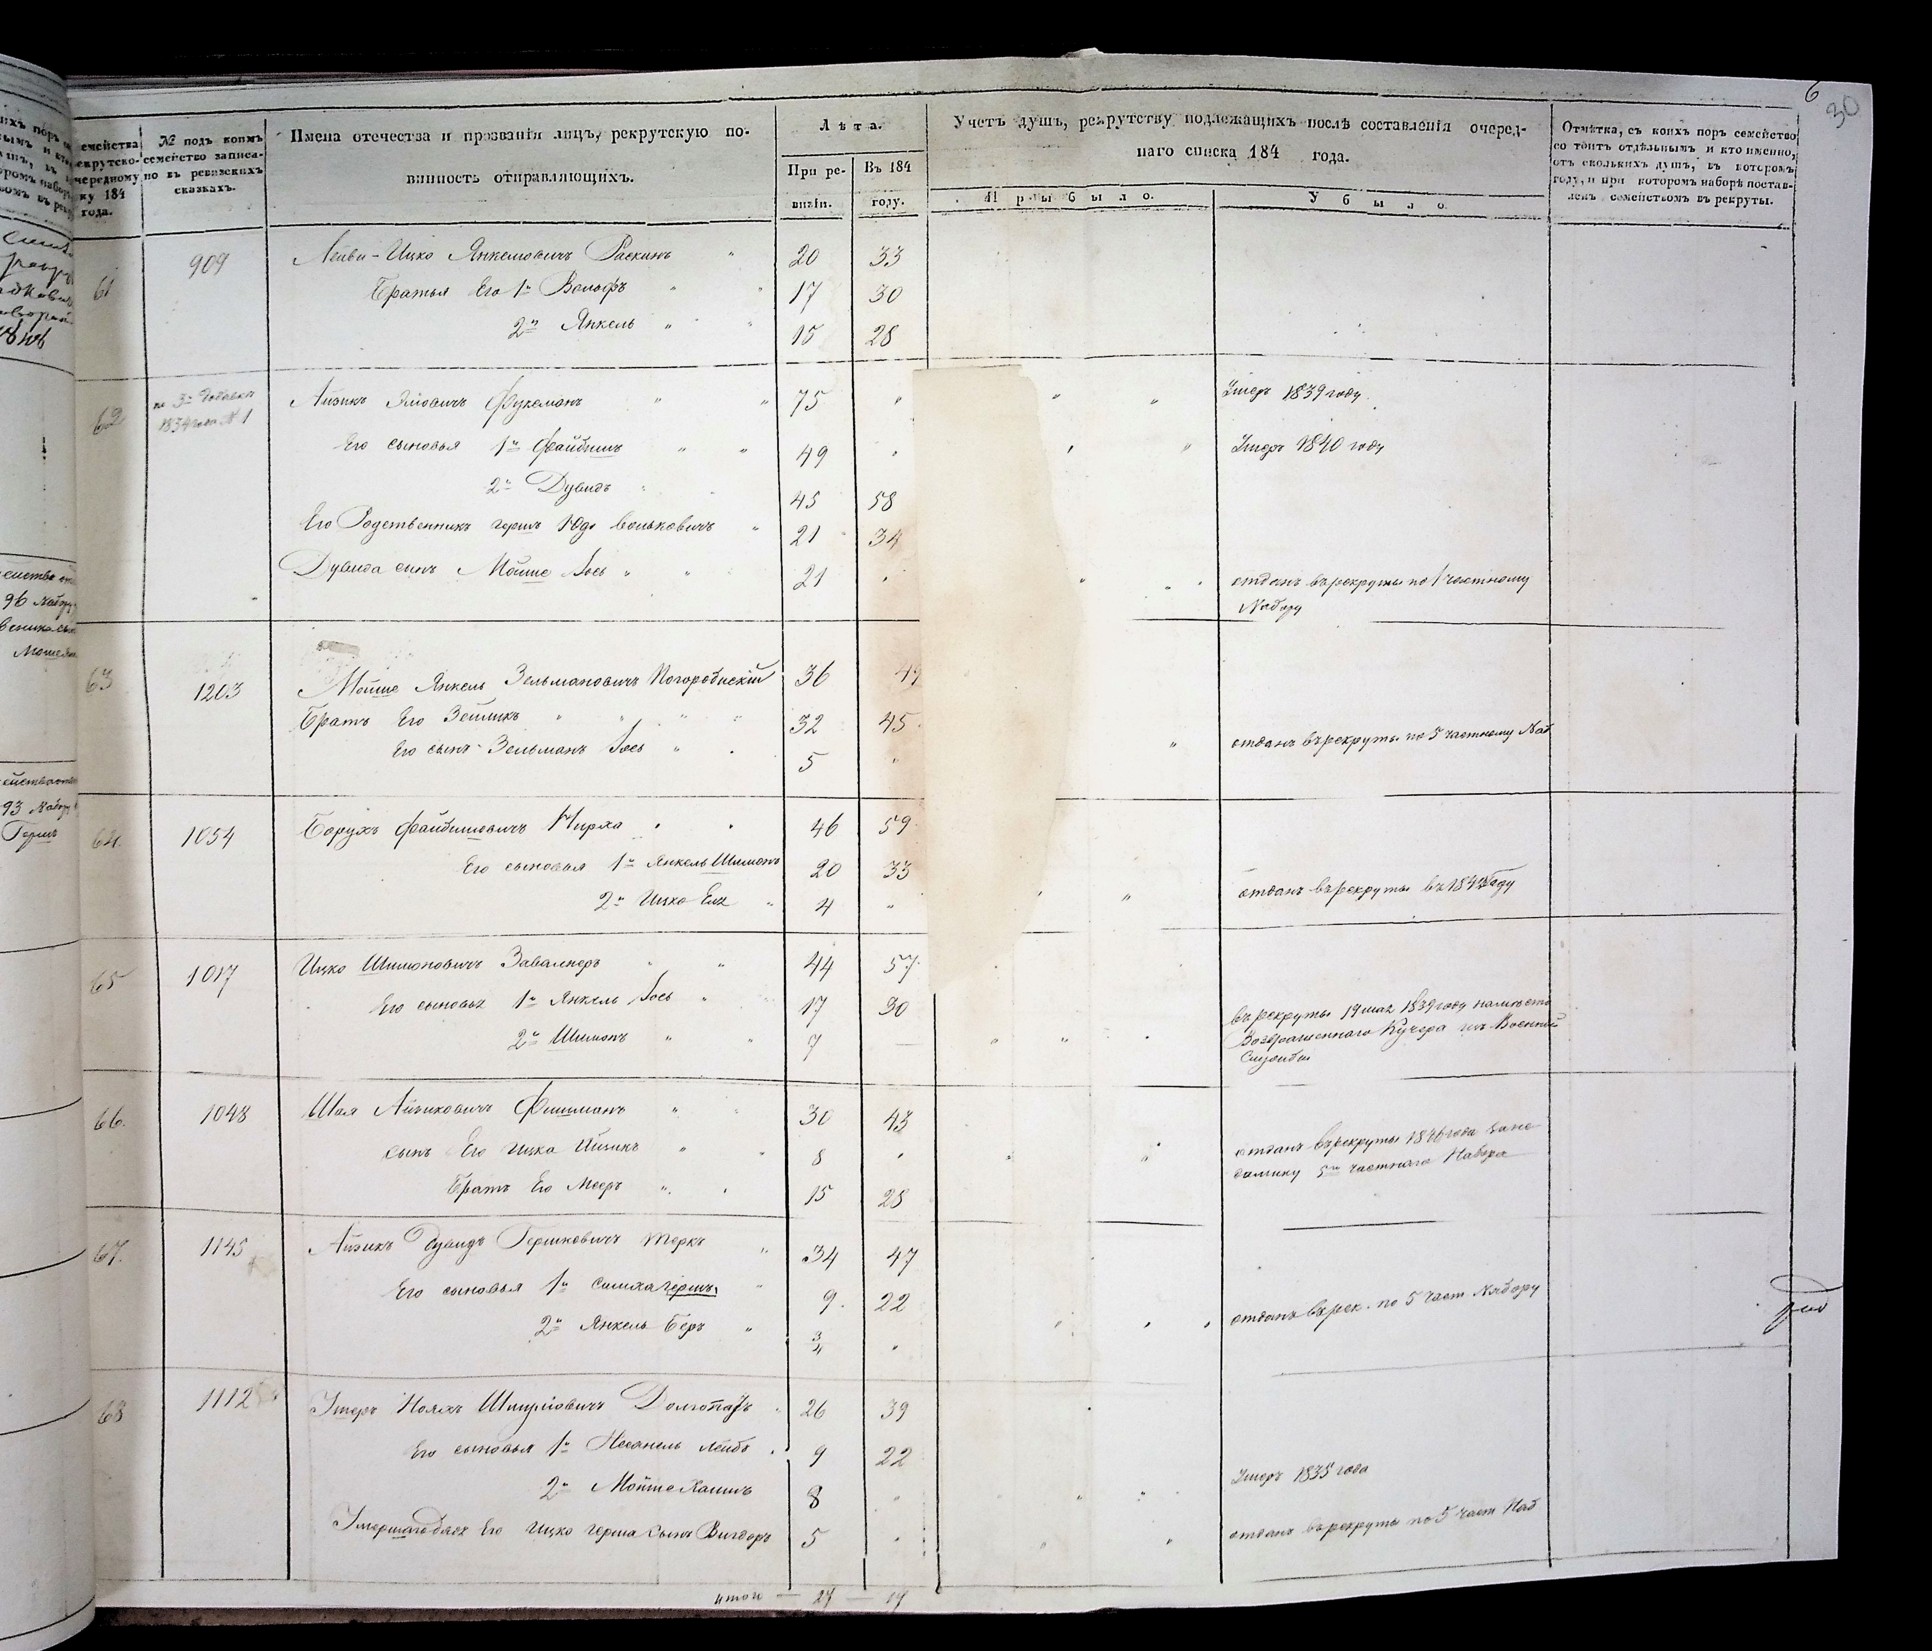 6
30
семейства
рекрутско-
чередному
ку 184
года.
№ подъ коимъ
семейство записа-
но въ ревизскихъ
сказкахъ.
Имена отечества и прозванія лицъ, рекрутскую по-
винность отправляющихъ.
Лѣта.
При ре-
визіи.
Въ 184
году.
Учетъ душъ, рекрутству подлежащихъ послѣ составленія очеред-
наго списка 184 года.
Прибыло.
Убыло.
Отмѣтка, съ коихъ поръ семейство
состоитъ отдѣльнымъ и кто именно,
отъ сколькихъ душъ, въ которомъ
году, и при которомъ наборѣ постав-
ленъ семействомъ въ рекруты.
61 909 Лейви-Ицко Янкелювичъ Раскинъ 20 33
Братья Его 1й Вольфъ 17 30
2й Янкель 15 28
62 по 3й 1834 года № 1 Айзикъ Фуксманъ 75 " Умеръ 1839 году
Его сыновья 1й Файбишъ 49 " Умеръ 1840 году
2й Дувидъ 45 58
Его Родственникъ Гершъ Юдъ Вольковичъ 21 34
Дувида сынъ Мойше Іось 21 " отданъ въ рекруты по 1 частному
Набору
63 1203 Мойше Янкель Зельмановичъ Погоробискій 36 49
Братъ Его Зейликъ 32 45
Его сынъ Зельманъ Іось 5 " отданъ въ рекруты по 5 частному Наб
64 1054 Борухъ Файбишовичъ Кирха 46 59
Его сыновья 1й Янкель Шимонъ 20 33
2й Ицко Еля 4 " отданъ въ рекруты въ 184 году
65 1017 Ицко Шимоновичъ Завалнеръ 44 57
Его сыновья 1й Янкель Іось 17 30
2й Шимонъ 7 — въ рекруты 19 мая 1839 году наместо
Возвращеннаго Кучера изъ Военной
Службы
66. 1048 Шая Айзиковичъ Фишманъ 30 43
сынъ Его Ицко Айзикъ 8 " отданъ въ рекруты 1846 года за не
доимку 5го частнаго Набора
Братъ Его Мееръ 15 28
67. 1145 Айзикъ Дувидъ Гершковичъ Теркъ 34 47
Его сыновья 1й Симха Гершъ 9. 22
2й Янкель Беръ 3/4 " отданъ въ рек. по 5 част Набору
68 1112 Умеръ Ноахъ Шмуліовичъ Долгопатъ 26 39
Его сыновья 1й Несанель Лейбъ 9 22
2й Мойше Хаимъ 8 " Умеръ 1835 года
Умершаго Его Ицко Герша сынъ Вигдоръ 5 " отданъ въ рекруты по 5 част Наб
итого — 27 — 17